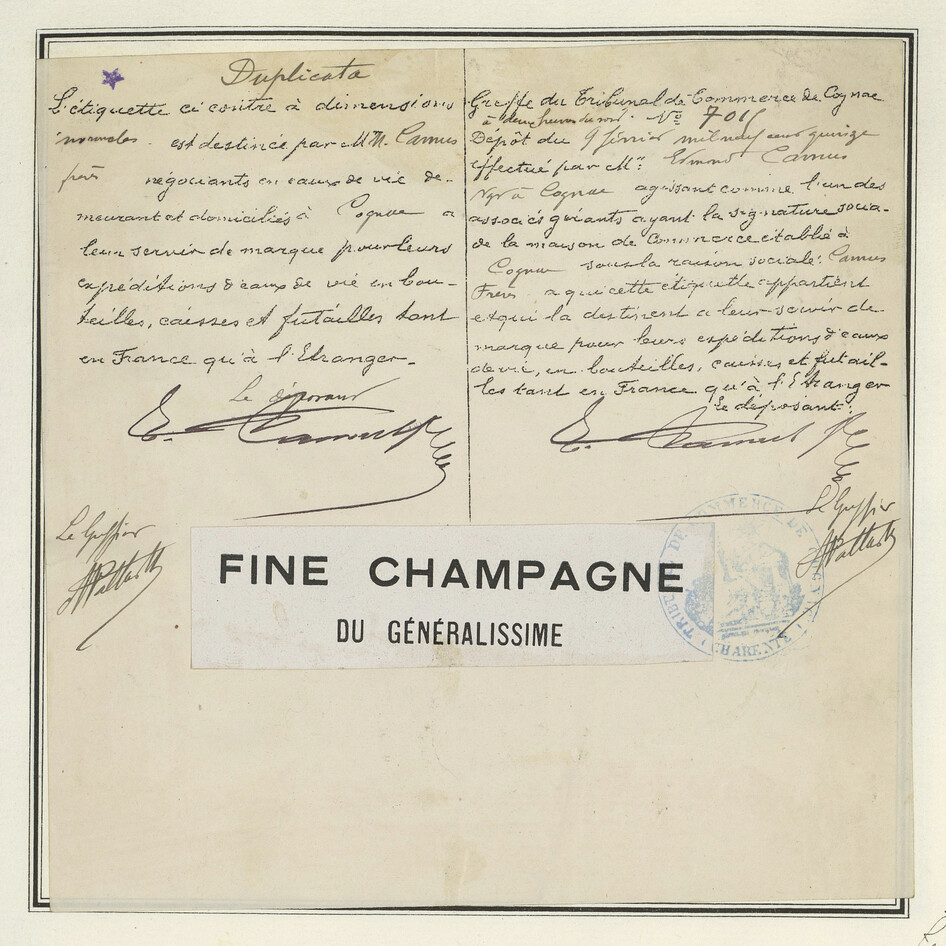 Duplicata
L'étiquette ci contre à dimensions
normales. est destinée par M.M. Camus
frères négociants en eaux de vie de-
meurant et domiciliés à Cognac a
leur servir de marque pour leurs
expéditions d'eaux de vie en bou-
teilles, caisses et futailles tant
en France qu'à l'Etranger-
Le déposant
E. Camus
Le Greffier
Greffe du Tribunal de Commerce de Cognac
à deux heures du soir. No
Dépôt du 9 février mil neuf cent quinze
effectué par Mr. Edmond Camus
Ngt à Cognac agissant comme l'un des
associés gérants ayant la signature socia-
le de la maison de Commerce établie à
Cognac sous la raison sociale: Camus
Frères a qui cette étiquette appartient
et qui la destinent a leur servir de
marque pour leurs expéditions d'eaux
de vie, en bouteilles, caisses et futail-
les tant en France qu'à l'Etranger
Le déposant:
E. Camus
Le Greffier
FINE CHAMPAGNE
DU GÉNÉRALISSIME
TRIBUNAL DE COMMERCE DE COGNAC
CHARENTE